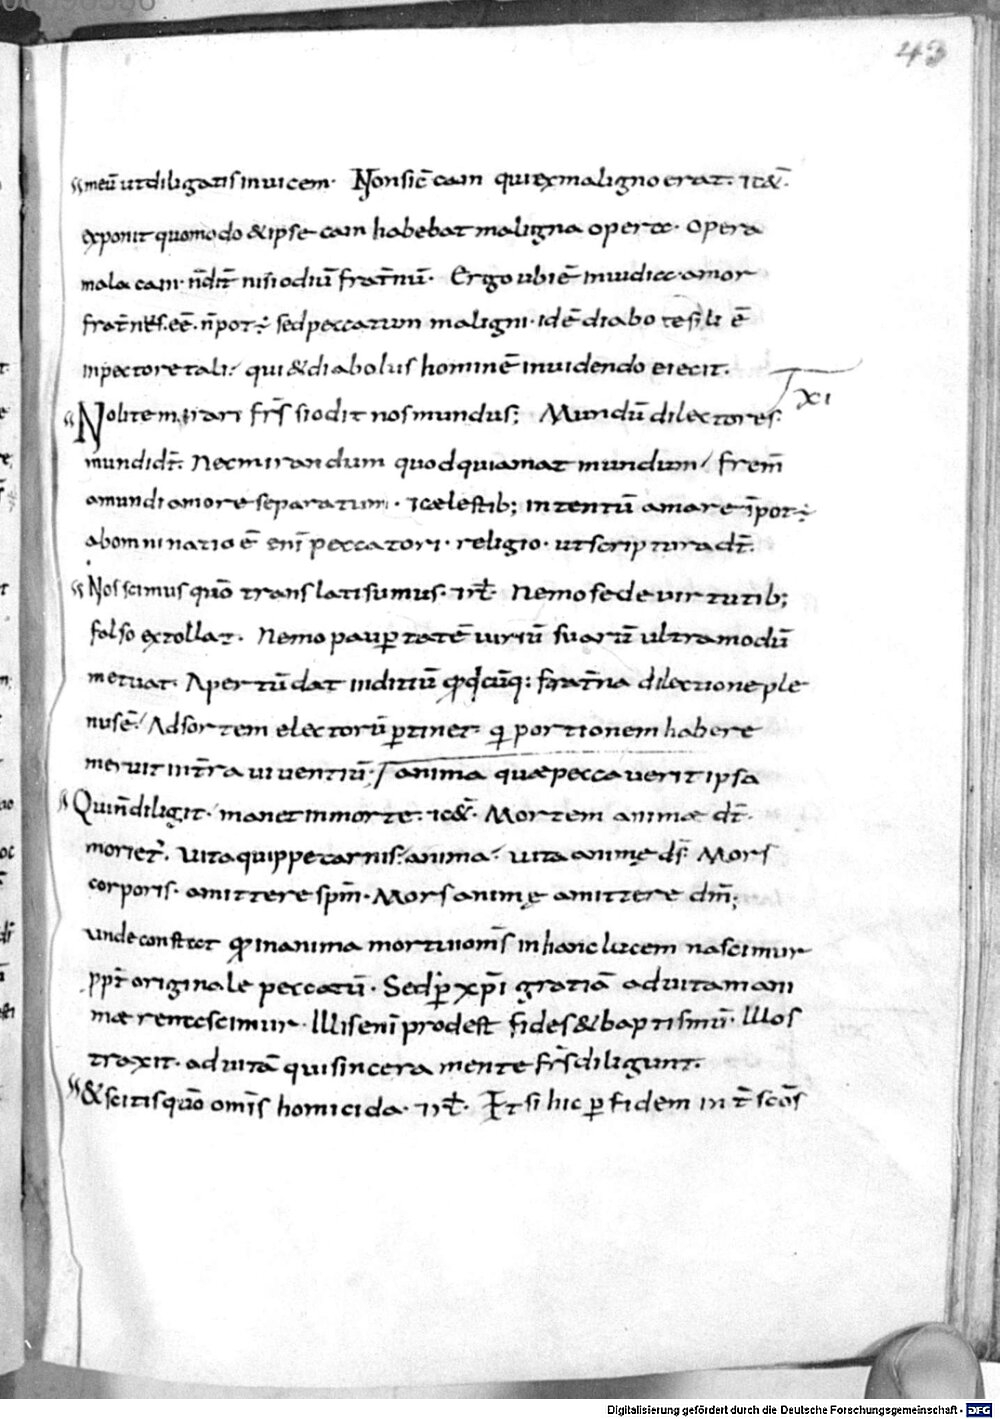 43
meū ut diligatis inuicem· Non sic̄ cain qui ex maligno erat· ⁊c&̄·
exponit quomodo & ipse cain habebat maligna opera· Opera
mala cain· n̄ dit̄ nisi odiū frat̄nū· Ergo ubi ē inuidia· amor
frat̄nus· eē· n̄ pot÷ sed peccatum maligni· id ē diabo
in pectore tali· qui & diabolus hominē inuidendo eiecit·
XI
Nolite mirari frs̄ si odit nos mundus; Mundū dilectores
mundi dt̄· Nec mirandum quod quia mat mundum frem̄
a mundi amore separatum· ⁊ cælestib; intentū amare n̄ pot÷
abominatio ē enī peccatori· religio· ut scriptura dt̄·
Nos scimus quō translati sumus· ⁊rl̄· Nemo se de uirtutib;
falso extollat· Nemo paup̱tatē uiriū suarū ultra modū
metuat· Apertū dat inditiū fraterna dilectione ple
nus ē· Ad sortem electorū p̱tinet· qi portionem habere
meruit in t̄ra uiuentiū· anima quæ peccauerit ipsa
Qui n̄ diligit· manet in morte· ⁊c&̄· Mortem animæ dt̄·
moriet̄· uita quippe carnis· anima· uita animę ds̄· Mors
corporis· amittere spm̄· Mors animę amittere dm̄;
unde constat in anima mortui omīs in hanc lucem nascimur
ppt̄ originale peccatū· Sed p̱ xp̄i gratiā ad uitam ani
mæ renascimur· Illis enī prodest fides & baptismū· Illos
traxit· ad uitā qui sincera mente frs̄ diligunt·
& scitis quō omīs homicida· ⁊rl̄· Et si hic p̱ fidem int̄ scōs
Digitalisierung gefördert durch die Deutsche Forschungsgemeinschaft - DFG